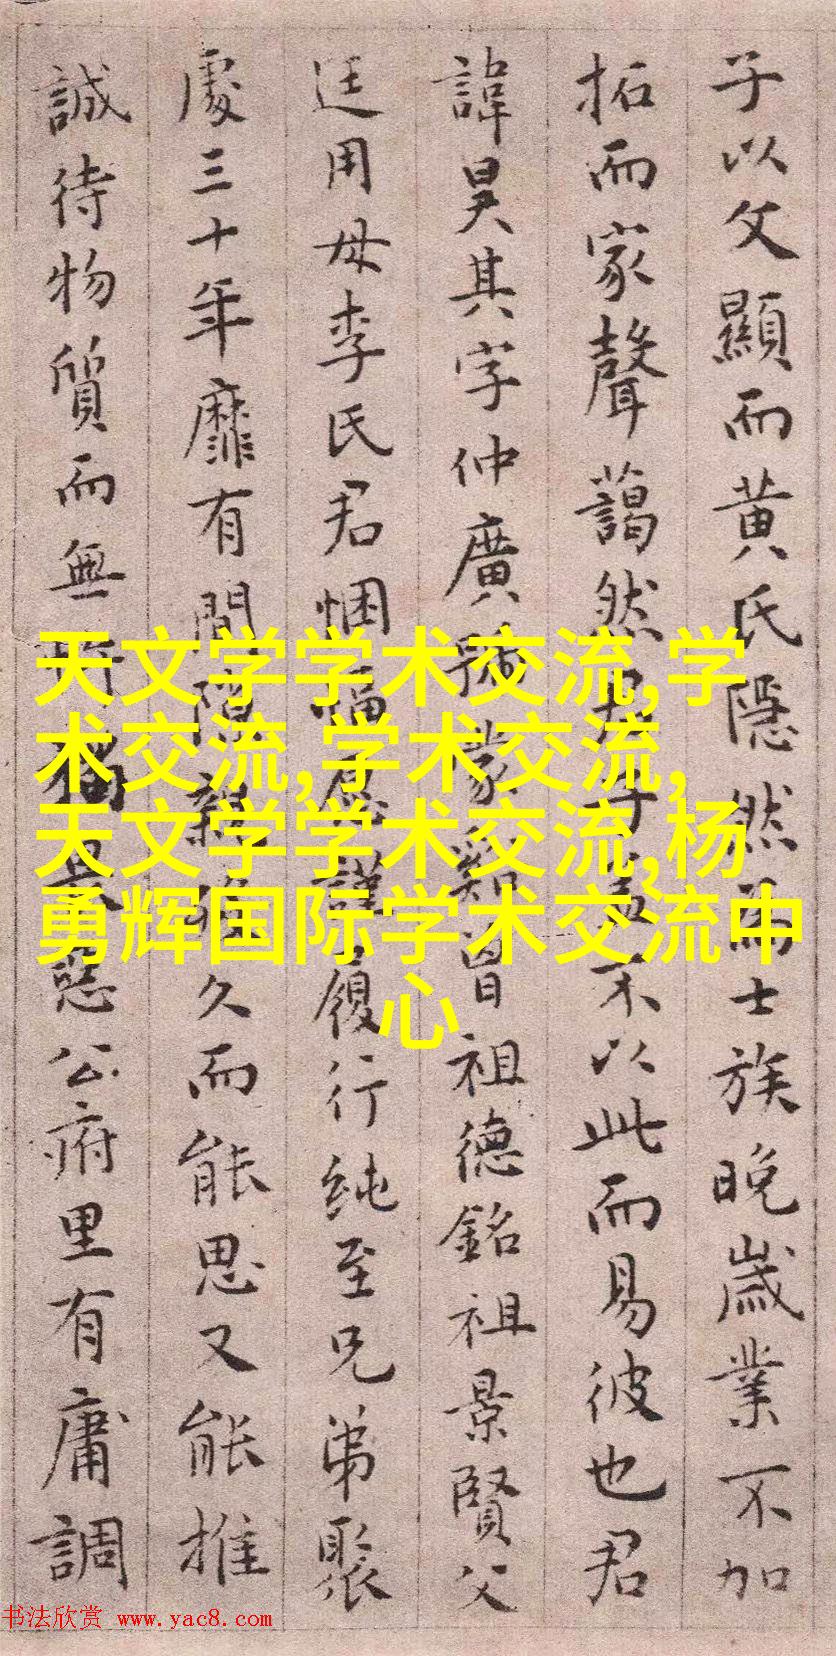 子以文顯而黄氏隠然為士族晚歲業不加
拓而家聲藹然君子不以此而易彼也君
諱昊其字仲廣號蒙谿曾祖德銘祖景賢父
廷用母李氏君悃愊謹履行純至兄弟聚
處三十年靡有間隙親久而能思又能推
誠待物質而無所公府里有庸調
天文学学术交流,学
术交流,学术交流,
天文学学术交流,杨
勇辉国际学术交流中
心
书法欣赏 www.yac8.com